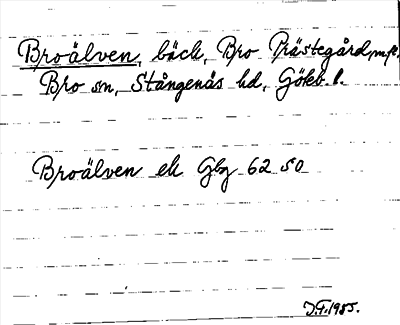 Broälven, bäck, Bro Prästegård, m.fl.
Bro sn, Stångenäs hd, Gbg. l.
Broälven ek Gbg 62 SO
J.F. 1985.